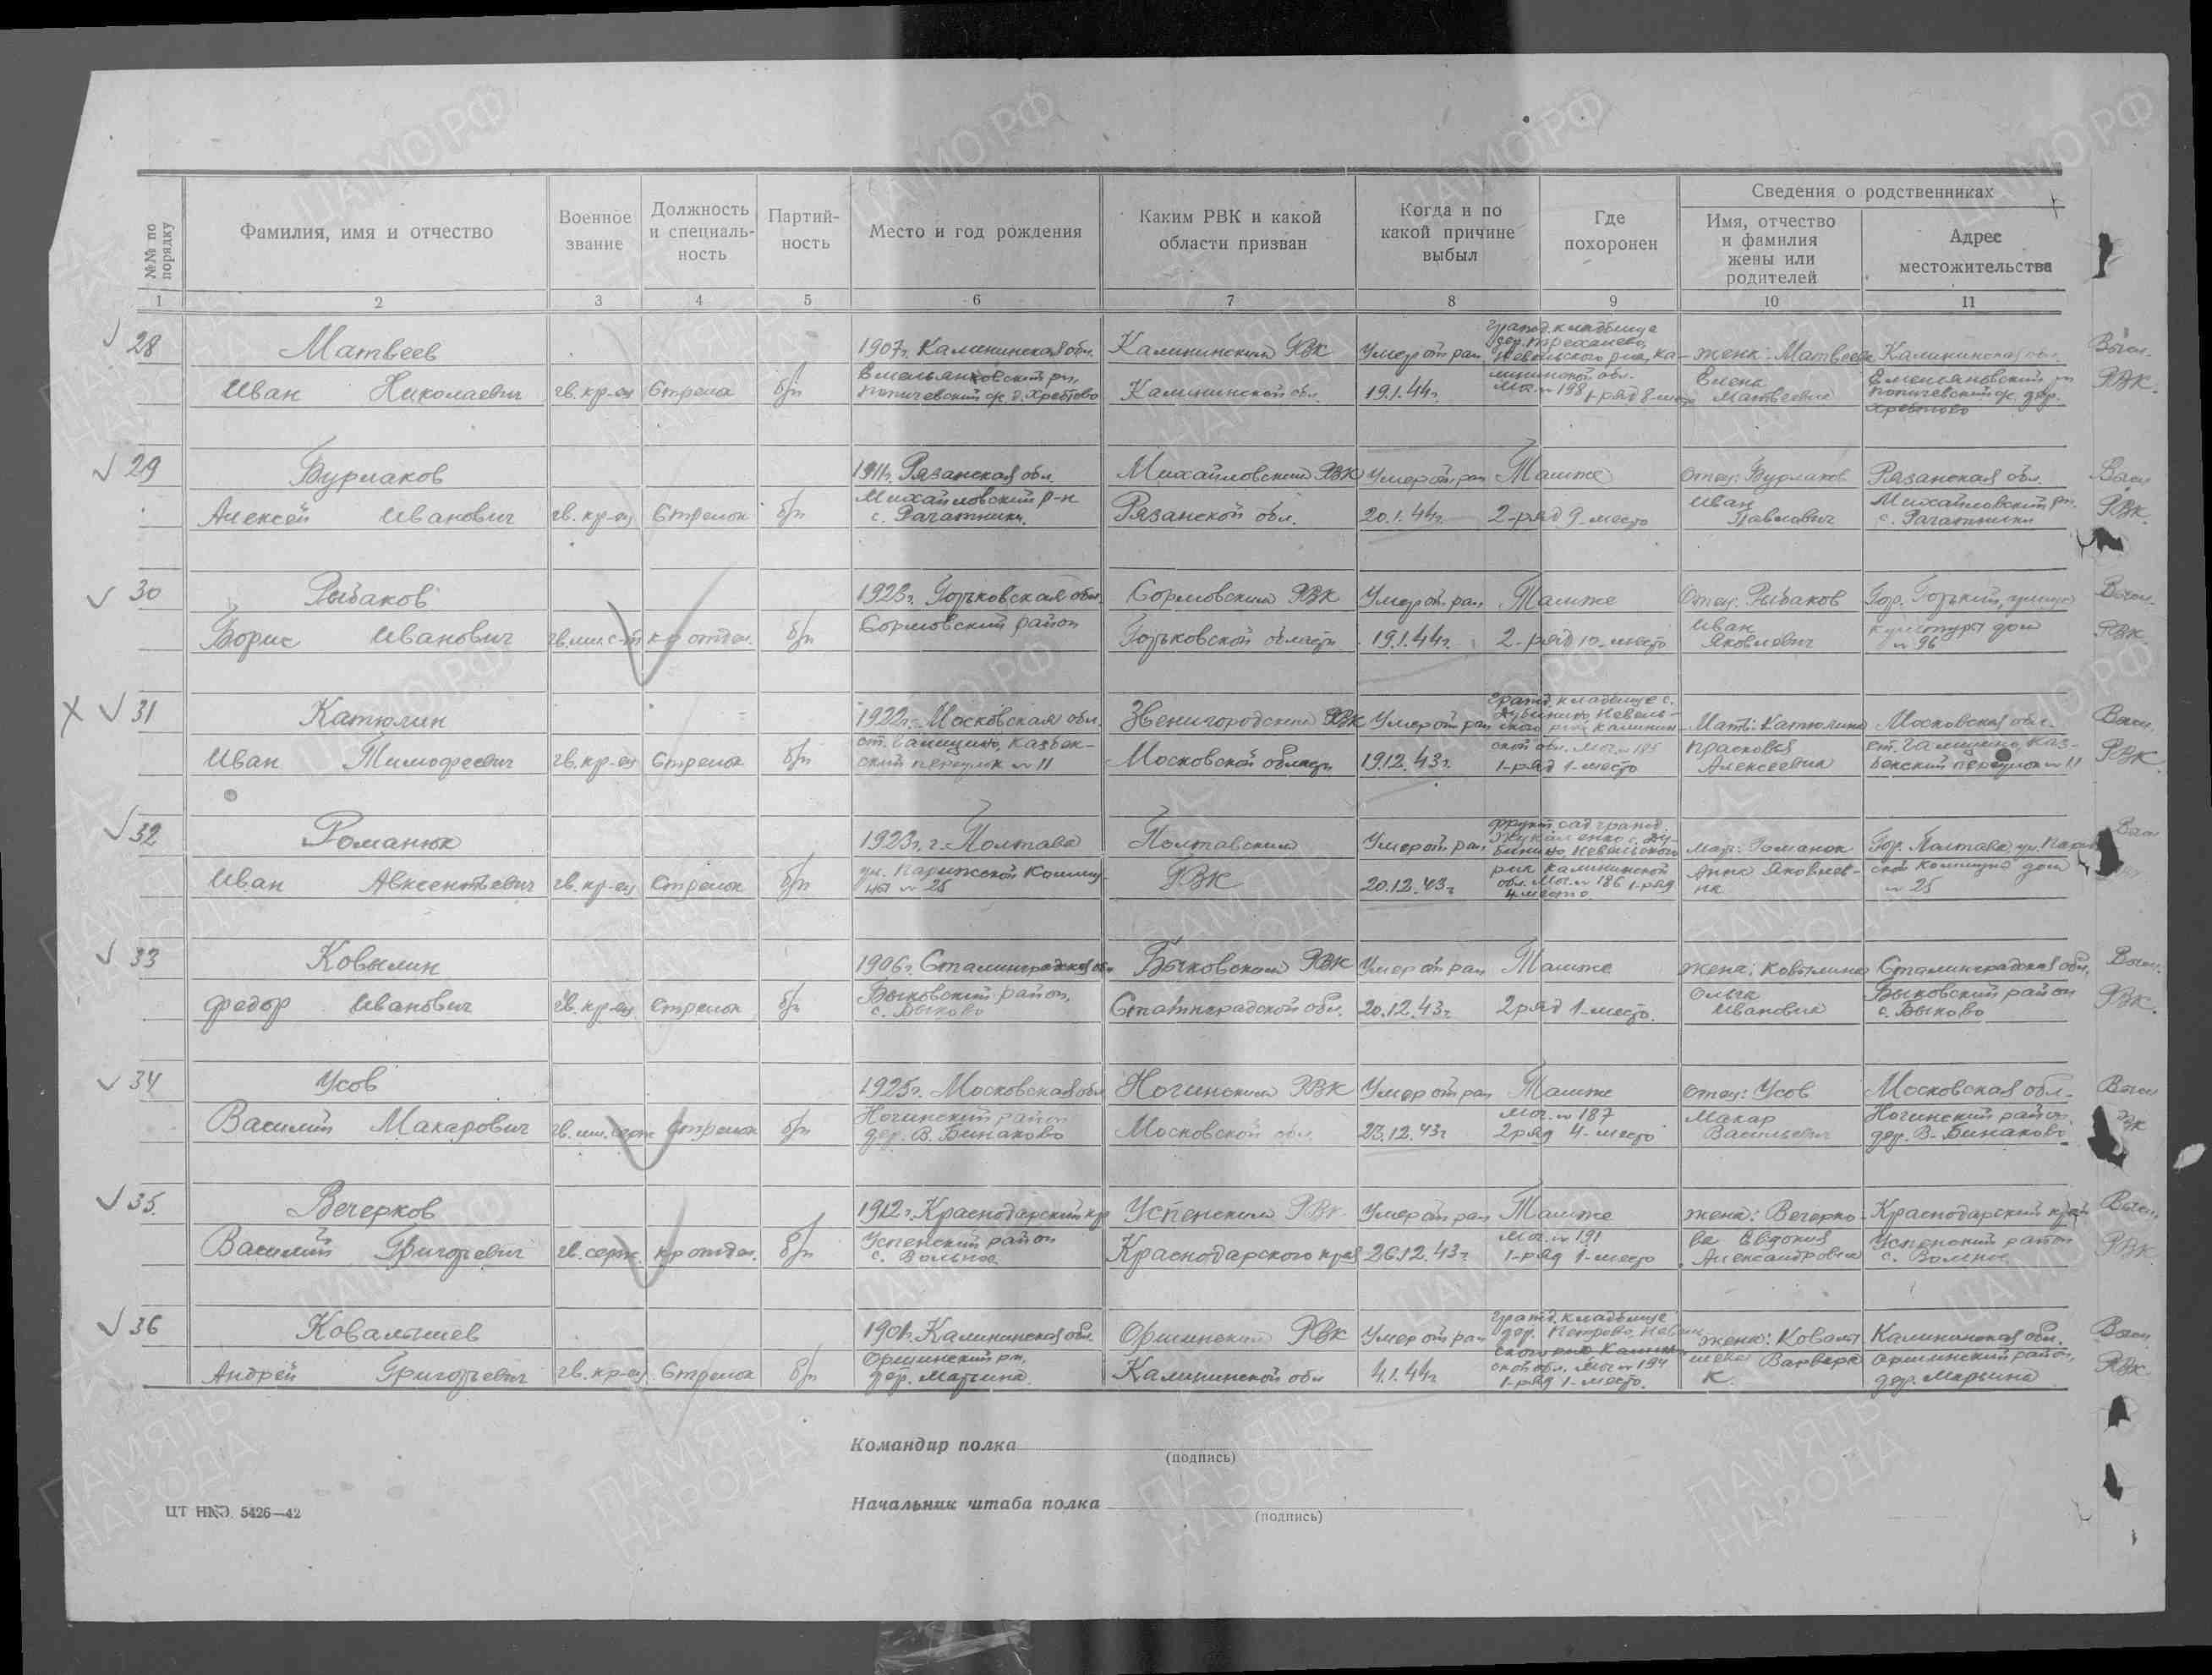 №№ по порядку
Фамилия, имя и отчество
Военное звание
Должность и специаль-ность
Партий-ность
Место и год рождения
Каким РВК и какой области призван
Когда и по какой причине выбыл
Где похоронен
Сведения о родственниках
Имя, отчество и фамилия жены или родителей
Адрес местожительства
1 2 3 4 5 6 7 8 9 10 11
28 Матвеев 1907г. Калининская обл. Калининский РВК Умер от ран гражд. кладбище
Иван Николаевич гв. кр-ец Стрелок б/п Емельяновский рн, д. Хребтово Калининской обл. 19.1.44г. Мог. № 198 1-ряд 8-место
жена: Матвеева Елена Матвеевна
Калининская обл. Емельяновский рн дер. Хребтово
РВК.
29 Бурлаков 1911г. Рязанская обл. Михайловский РВК Умер от ран Там же
Алексей Иванович гв. кр-ец Стрелок б/п Михайловский р-н с. Рачатники. Рязанской обл. 20.1.44г. 2-ряд 9-место
отец: Бурлаков Иван Павлович
Рязанская обл. Михайловский рн. с. Рачатники
РВК.
30 Рыбаков 1923г. Горьковская обл. Сормовский РВК Умер от ран Там же
Борис Иванович гв. мл. с-т к-р отдел. б/п Сормовский район Горьковской области 19.1.44г. 2-ряд 10-место
Отец: Рыбаков Иван Яковлевич
Гор. Горький, улица культуры дом № 96
РВК.
31 Катюлин 1922г. Московская обл. Звенигородский РВК Умер от ран гражд. кладбище с. Дубинино Невель-ского р-на Калинин-ской обл. Мог. № 185
Иван Тимофеевич гв. кр-ец Стрелок б/п Казбек-ский переулок № 11 Московской области 19.12.43г. 1-ряд 1-место
Мать: Катюлина Прасковья Алексеевна
Московская обл. ст. Голицыно, Каз-бекский переулок № 11
РВК
32 Романюк 1923г. г. Полтава Полтавский Умер от ран фрукт. сад гражд.
Иван Авксентьевич гв. кр-ец Стрелок б/п ул. Парижской Комму-ны № 25 РВК 20.12.43г. Калининской обл. Мог. № 186 1-ряд 4-место
мать: Романюк Анна Яковлев-на
Гор. Полтава ул. Париж-ской коммуны дом № 25
33 Ковылин 1906г. Сталинградская обл. Быковский РВК Умер от ран Там же
Федор Иванович гв. кр-ец Стрелок б/п Быковский район, с. Быково Сталинградской обл. 20.12.43г. 2 ряд 1-место.
жена: Ковылина Ольга Ивановна
Сталинградская обл. Быковский район с. Быково
РВК.
34 Усов 1925г. Московская обл. Ногинский РВК Умер от ран Там же
Василий Макарович гв. мл. серж. Стрелок б/п Ногинский район дер. В. Бинаково Московской обл. 23.12.43г Мог. № 187 2 ряд 4-место
отец: Усов Макар Васильевич
Московская обл. Ногинский район, дер. В-Бинаково
РВК
35. Вечерков 1912г. Краснодарский кр. Успенский РВК Умер от ран Там же
Василий Григорьевич гв. серж. к-р отдел. б/п Успенский район с. Вольное Краснодарского края 26.12.43г. Мог. № 191 1-ряд 1-место
жена: Вечерко-ва Евдокия Александровна
Краснодарский край Успенский район с. Вольное
РВК
36 Ковалышев 1901г. Калининская обл. Оршинский РВК Умер от ран гражд. кладбище дер. Петрово
Андрей Григорьевич гв. кр-ец Стрелок б/п Оршинский рн, дер. Марьина. Калининской обл 4.1.44г Мог. № 194 1-ряд 1-место.
жена: Ковалы-шева Варвара К.
Калининская обл. Оршинский район, дер. Марьино
РВК.
Командир полка
(подпись)
Начальник штаба полка
(подпись)
ЦТ НКО. 5426—42
ЦАМО.РФ
ПАМЯТЬ НАРОДА